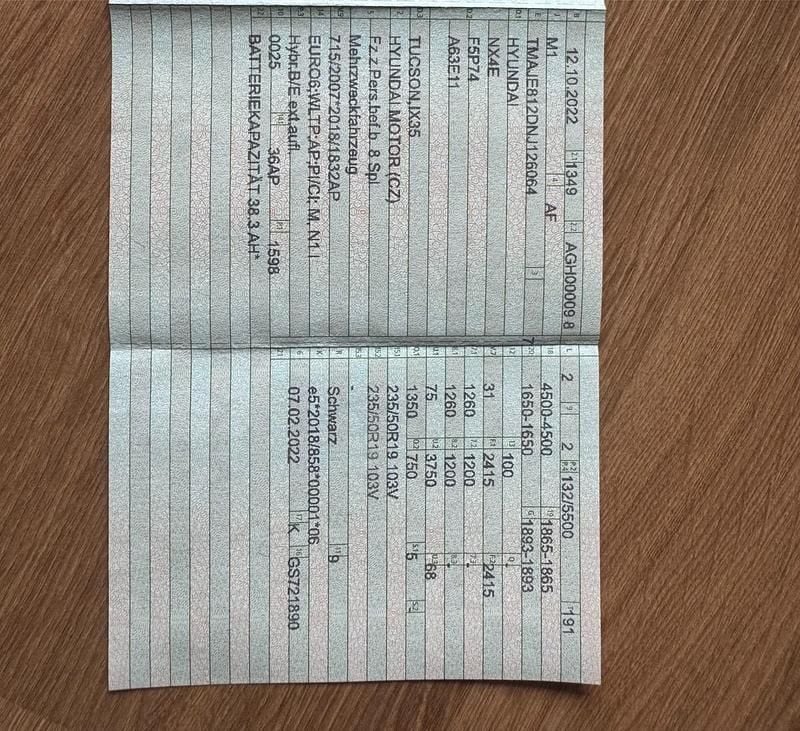 B 12.10.2022 2.1 1349 2.2 AGH00009 8
J M1 4 AF
E TMAJE812DNJ126064 3 7
D.1 HYUNDAI
NX4E
D.2 F5P74
A63E11
D.3 TUCSON,IX35
2 HYUNDAI MOTOR (CZ)
5 Fz.z.Pers.bef.b. 8 Spl
Mehrzweckfahrzeug
V.9 715/2007*2018/1832AP
14 EURO6;WLTP;AP;PI/CI; M, N1 I
P.3 Hybr.B/E ext.aufl.
10 0025 14.1 36AP P.1 1598
22 BATTERIEKAPAZITÄT 38.3 AH*
L 2 9 2 P.2 P.4 132/5500 T 191
18 4500-4500 19 1865-1865
20 1650-1650 G 1893-1893
12 13 100 Q -
V.7 31 F.1 2415 F.2 2415
7.1 1260 7.2 1200 7.3 -
8.1 1260 8.2 1200 8.3 -
U.1 75 U.2 3750 U.3 68
O.1 1350 O.2 750 S.1 5 S.2
15.1 235/50R19 103V
15.2 235/50R19 103V
15.3 -
R Schwarz 11 9
K e5*2018/858*00001*06
6 07.02.2022 17 K 16 GS721890
21